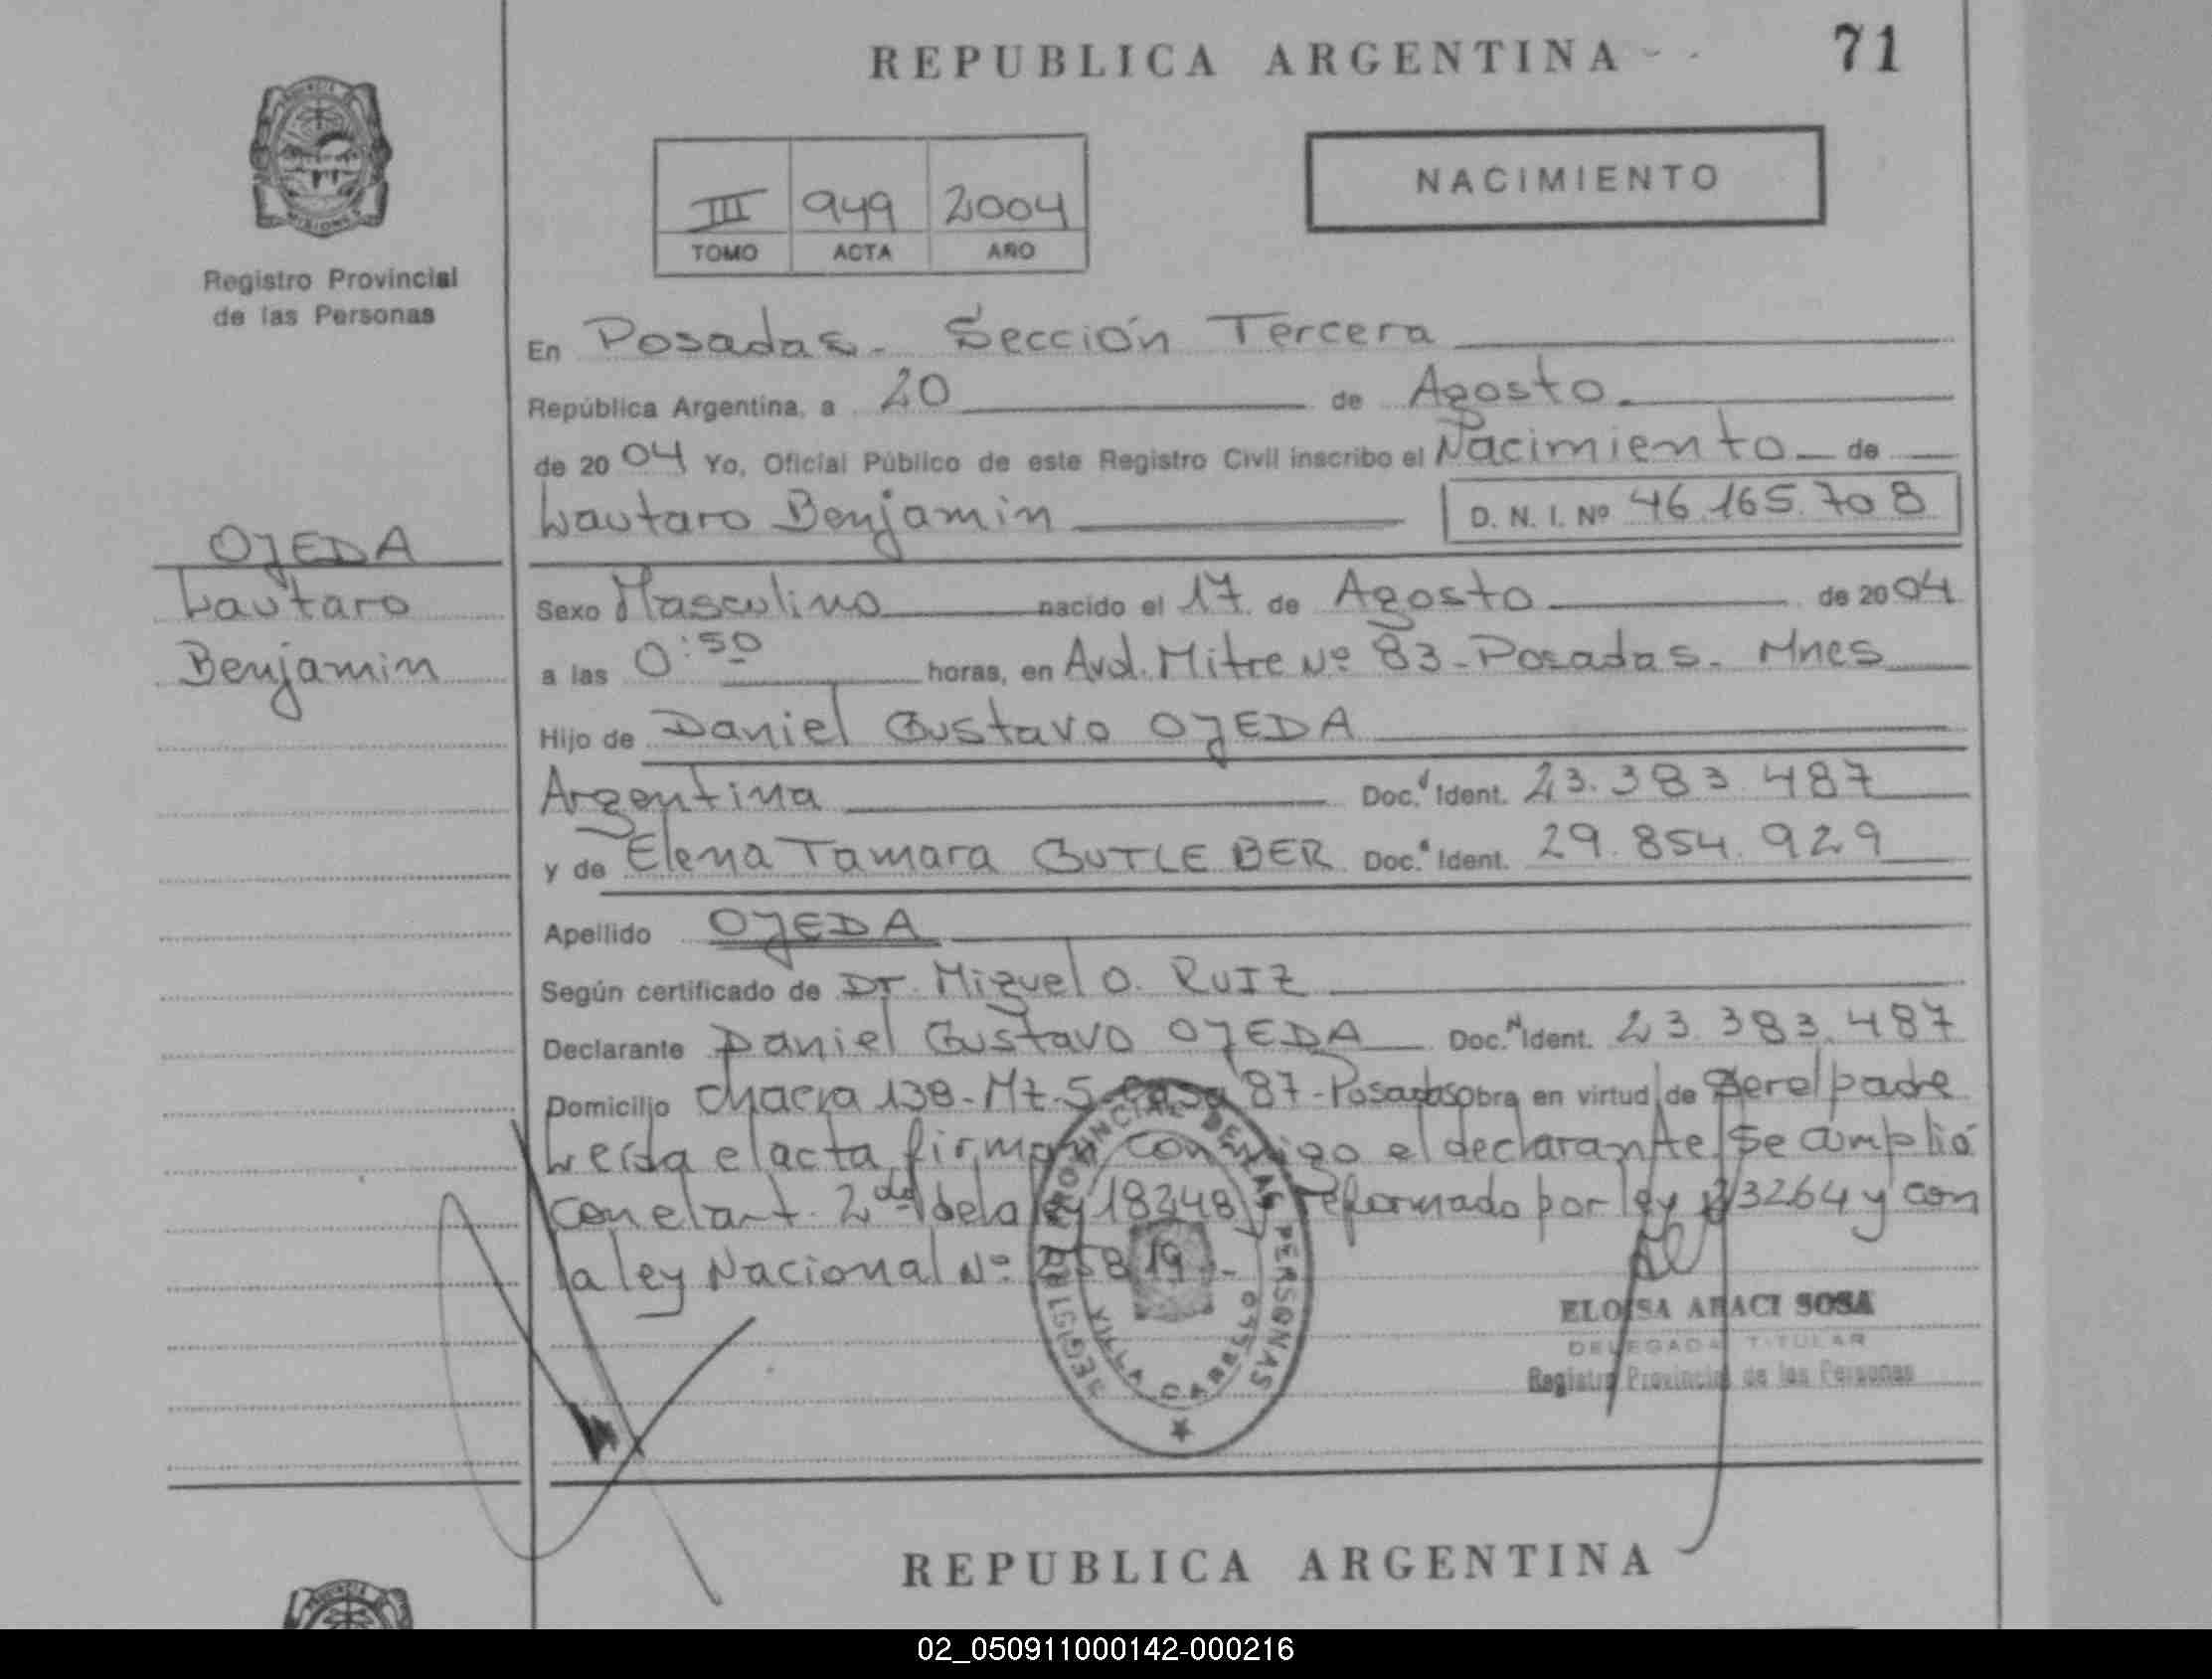 REPUBLICA ARGENTINA
71
PROVINCIA DE MISIONES
Registro Provincial
de las Personas
III 949 2004
TOMO ACTA AÑO
NACIMIENTO
En Posadas - Sección Tercera
República Argentina, a 20 de Agosto.
de 2004 Yo, Oficial Público de este Registro Civil inscribo el Nacimiento de
Lautaro Benjamin D. N. I. Nº 46.165.708
OJEDA
Lautaro
Benjamin
Sexo Masculino nacido el 17 de Agosto de 2004
a las 0:50 horas, en Avd. Mitre Nº 83 - Posadas - Mnes
Hijo de Daniel Gustavo OJEDA
Argentina Doc. Ident. 23.383.487
y de Elena Tamara GUTLEBER Doc. Ident. 29.854.929
Apellido OJEDA
Según certificado de Dr. Miguel O. RUIZ
Declarante Daniel Gustavo OJEDA Doc. Ident. 23.383.487
Domicilio Chacra 138 - Mz. 5 Casa 87 - Posadas obra en virtud de Ser el padre
Leída el acta, firma conmigo el declarante. Se amplió
con el art. 2do de la ley 18248 reformado por ley 23264 y con
la ley Nacional Nº 25819.-
REGISTRO PROVINCIAL DE LAS PERSONAS
VILLA CABELLO
ELOISA ARACI SOSA
DELEGADA TITULAR
Registro Provincial de las Personas
REPUBLICA ARGENTINA
02_050911000142-000216